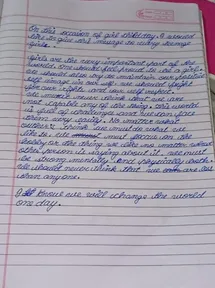 On this occasion of girl child day, I would
like to give this message to every teenage
girls.
Girls are the very important part of the
world. We should
should also try to maintain our
image in our self. We should fight
for our rights and our self respect.
We should never think that we are
not capable any of the thing. This world
is full of challenges and we can face
them very easily. No matter what
others think we must do what we
like to do must focus on the
hobby or the thing we like no matter what
other person is saying about it. We must
be strong mentally and physically both.
We should never think that we are less
than anyone.
I know we will change the world
one day.